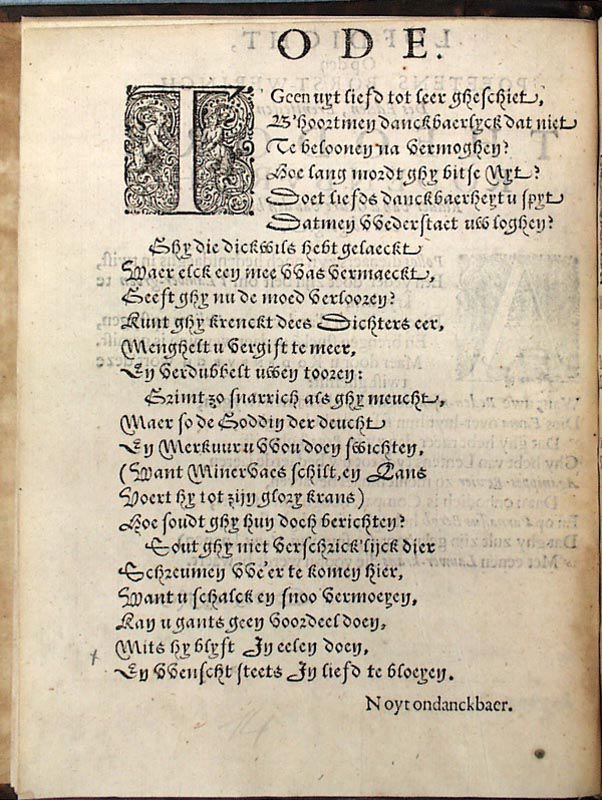 ODE.
T'Geen uyt liefd tot leer gheschiet,
B'hoort men danckbaerlyck dat niet
Te beloonen na vermoghen?
Hoe lang mordt ghy bitse Nyt?
Doet liefds danckbaerheyt u spyt
Datmen wederstaet uw loghen?
Ghy die dickwils hebt gelaeckt
Waer elck een mee was vermaeckt,
Geeft ghy nu de moed verlooren?
Kunt ghy krenckt dees Dichters eer,
Menghelt u vergift te meer,
En verdubbelt uwen tooren:
Grimt zo snarrich als ghy meucht,
Maer so de Goddin der deucht
En Merkuur u wou doen swichten,
(Want Minervaes schilt, en Lans
Voert hy tot zijn glory krans)
Hoe soudt ghy hun doch berichten?
Sout ghy niet verschrick'lijck dier
Schreumen we'er te komen hier,
Want u schalck en snoo vermoeyen,
Kan u gants geen voordeel doen,
Mits hy blyft In eelen doen,
En wenscht steets In liefd te bloeyen.
Noyt ondanckbaer.